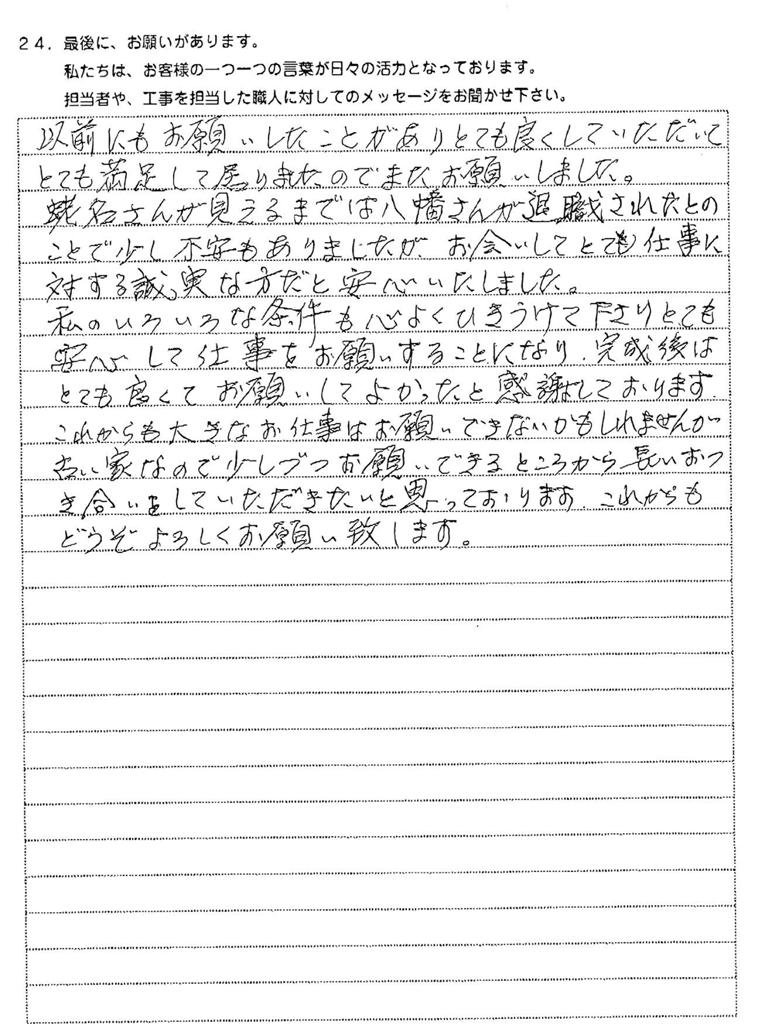 24．最後に、お願いがあります。
私たちは、お客様の一つ一つの言葉が日々の活力となっております。
担当者や、工事を担当した職人に対してのメッセージをお聞かせ下さい。
以前にもお願いしたことがありとても良くしていただいて
とても満足して居りましたのでまたお願いしました。
蛯名さんが見えるまでは八幡さんが退職されたとの
ことで少し不安もありましたが お会いしてとても仕事に
対する誠実な方だと安心いたしました。
私のいろいろな条件も心よくひきうけて下さりとても
安心して仕事をお願いすることになり、完成後は
とても良くてお願いしてよかったと感謝しております
これからも大きなお仕事はお願いできないかもしれませんが
古い家なので少しづつお願いできるところから長いおつ
き合いをしていただきたいと思っております。これからも
どうぞよろしくお願い致します。